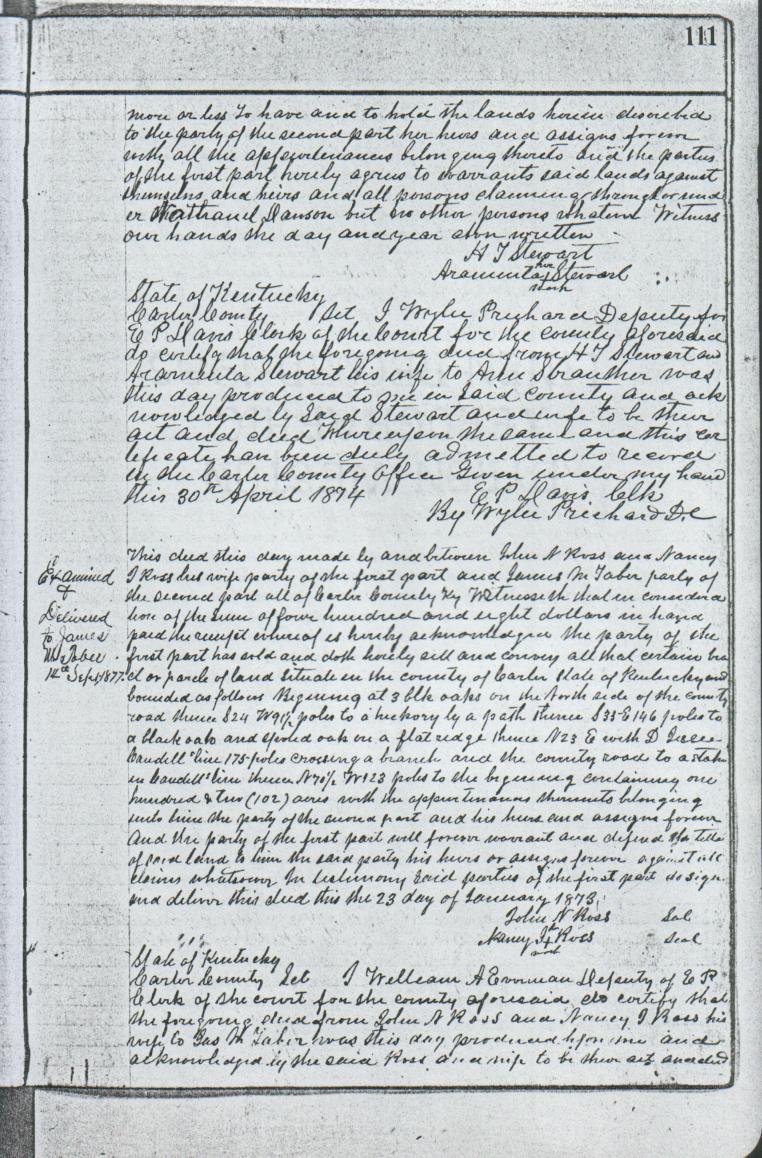 111
more or less To have and to hold the lands herein described
to the party of the second part her heirs and assigns forever
with all the appurtenances belonging thereto and the parties
of the first part hereby agrees to warrants said lands against
themselves and heirs and all persons claiming through or und
er Nathaniel Dawson but no other persons whatever Witness
our hands the day and year above written
H T Stewart
Araminta her Stewart
mark
State of Kentucky
Carter County Sct I Wylie Prichard Deputy for
E P Davis Clerk of the Court for the county aforesaid
do certify that the foregoing deed from H T Stewart and
Araminta Stewart his wife to Ann Strauther was
this day produced to me in said county and ack
nowledged by said Stewart and wife to be their
act and deed Whereupon the same and this cer
tificate has been duly admitted to record
in the Carter County Office Given under my hand
this 30th April 1874
E P Davis Clk
By Wylie Prichard D.C
Examined
&
Delivered
to James
M Taber
14th Sept 1877
This deed this day made by and between John N Ross and Nancy
J Ross his wife party of the first part and James M Taber party of
the second part all of Carter County Ky Witnesseth that in considera
tion of the sum of four hundred and eight dollars in hand
paid the receipt whereof is hereby acknowledged the party of the
first part has sold and doth hereby sell and convey all that certain tra
ct or parcle of land situate in the county of Carter State of Kentucky and
bounded as follows Begining at 3 blk oaks on the North side of the county
road thence S24 W91½ poles to a hickory by a path thence S35 E146 poles to
a black oak and spotted oak on a flat ridge thence N23 E with D
Caudell line 175 poles crossing a branch and the county road to a stake
in Caudell line thence N70½ W123 poles to the begining containing one
hundred & two (102) acres with the appurtenances thereunto belonging
unto him the party of the second part and his heirs and assigns forever
And the party of the first part will forever warrant and defend the title
of said land to him the said party his heirs or assigns forever against all
claims whatsoever In testimony said parties of the first part do sign
and deliver this deed this the 23 day of January 1873
John N Ross Seal
Nancy J Ross Seal
mark
State of Kentucky
Carter County Sct I William A Everman Deputy of E P
Clerk of the court for the county aforesaid do certify that
the foregoing deed from John N Ross and Nancy J Ross his
wife to Jas M Taber was this day produced before me and
acknowledged by the said Ross and wife to be their act and deed